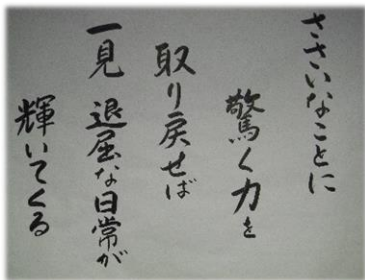 ささいなことに
驚く力を
取り戻せば
一見 退屈な日常が
輝いてくる